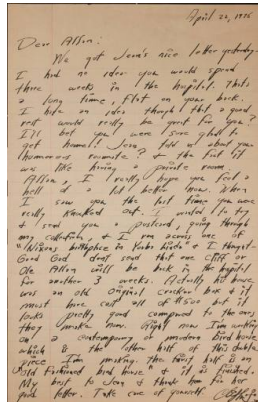 April 22, 1976
Dear Allan:
We got Jean's nice letter yesterday.
I had no idea you would spend
three weeks in the hospital. That's
a long time, flat on your back.
I had an idea though that a good
rest would really be great for you?
I'll bet you were sure glad to
get home! Jean told us about your
humorous roomate? & the fact it
was like having a private room.
Allan, I really hope you feel a
hell of a lot better now. When
I saw you the last time you were
really knocked out. I wanted to try
& send you a postcard, going through
my collection, & I ran across one of
"Nixons birthplace in Yorba Linda" & I thought-
Good God don't send that one Cliff or
Ole Allan will be back in the hospital
for another 3 weeks. Actually his house
was an old original cracker box & it
must have cost all of $500 but it
looks pretty good compared to the ones
they make now. Right now I'm working
on a contemporary or modern bird house
which is the other half of this double
piece I'm making. The first half is an
"old fashioned bird house" & it is finished.
My best to Jean & thank her for her
good letter. Take care of yourself.